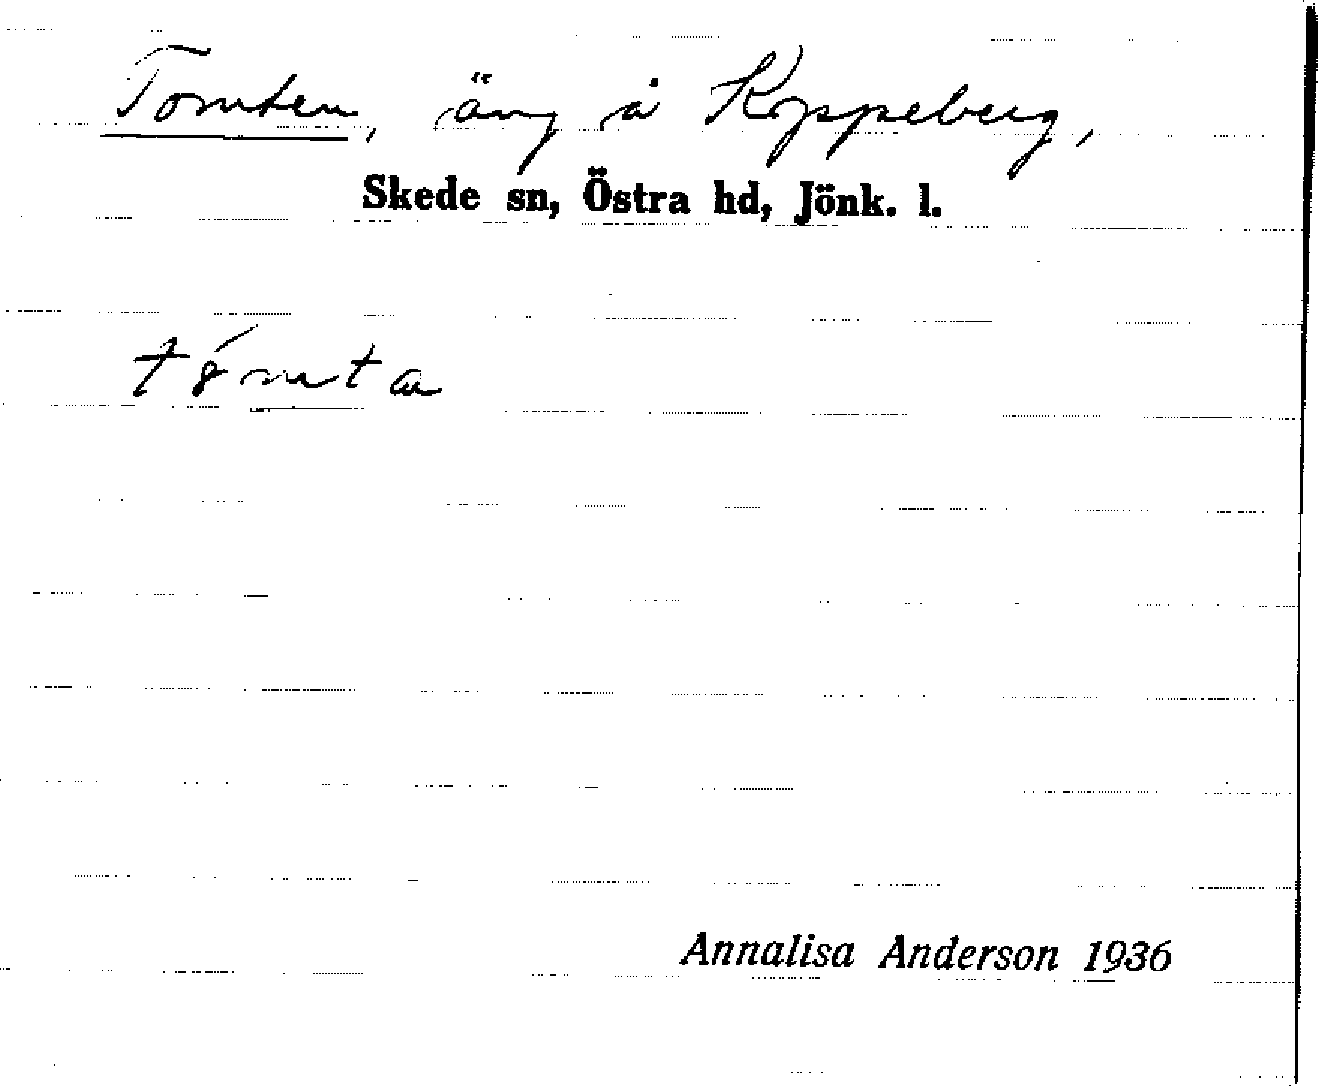 Tomten, äng å Koppeberg,
Skede sn, Östra hd, Jönk. l.
tó̜mta
Annalisa Anderson 1936